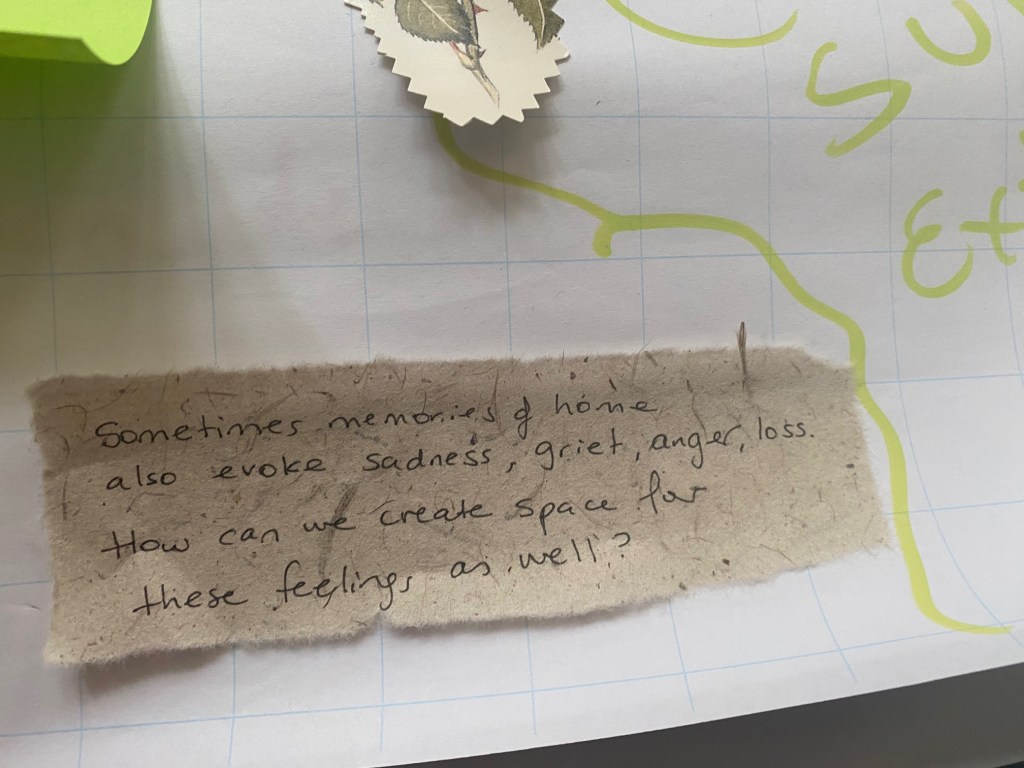 Sometimes memories of home
also evoke sadness, grief, anger, loss.
How can we create space for
these feelings as well?